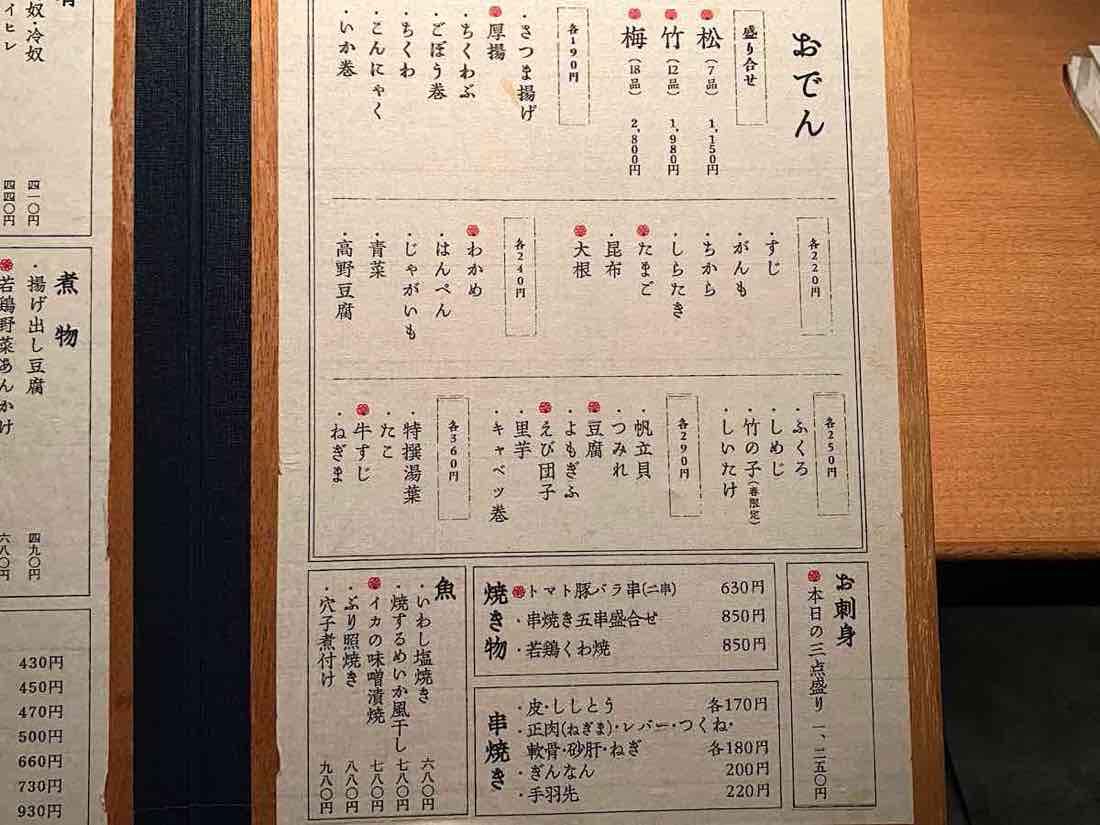 おでん
盛り合せ
松(7品) 1,150円
竹(12品) 1,980円
梅(18品) 2,800円
各190円
・さつま揚げ
厚揚
・ちくわぶ
・ごぼう巻
・ちくわ
・こんにゃく
・いか巻
各220円
・すじ
・がんも
・ちから
・しらたき
たまご
・昆布
大根
各240円
わかめ
・はんぺん
・じゃがいも
・青菜
・高野豆腐
各250円
・ふくろ
・しめじ
・竹の子(春限定)
・しいたけ
各290円
・帆立貝
・つみれ
豆腐
・よもぎふ
えび団子
・里芋
・キャベツ巻
各360円
・特撰湯葉
・たこ
牛すじ
・ねぎま
お刺身
本日の三点盛り 一、二五〇円
焼き物
トマト豚バラ串(二串) 630円
・串焼き五串盛合せ 850円
・若鶏くわ焼 850円
串焼き
・皮・ししとう 各170円
・正肉(ねぎま)・レバー・つくね・
軟骨・砂肝・ねぎ 各180円
・ぎんなん 200円
・手羽先 220円
魚
・いわし塩焼き 六八〇円
・焼するめいか風干し 七八〇円
イカの味噌漬焼 七八〇円
・ぶり照焼き 八八〇円
・穴子煮付け 九八〇円
奴・冷奴 四一〇円
イヒレ 四四〇円
煮物
・揚げ出し豆腐 四九〇円
若鶏野菜あんかけ 六八〇円
430円
450円
470円
500円
660円
730円
930円